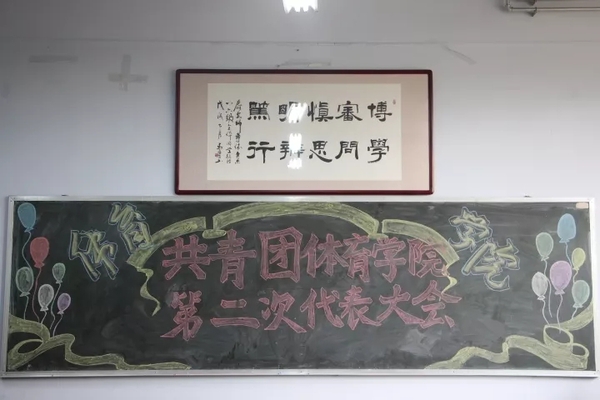 博學
審問
慎思
明辨
篤行
共青团体育学院
第二次代表大会